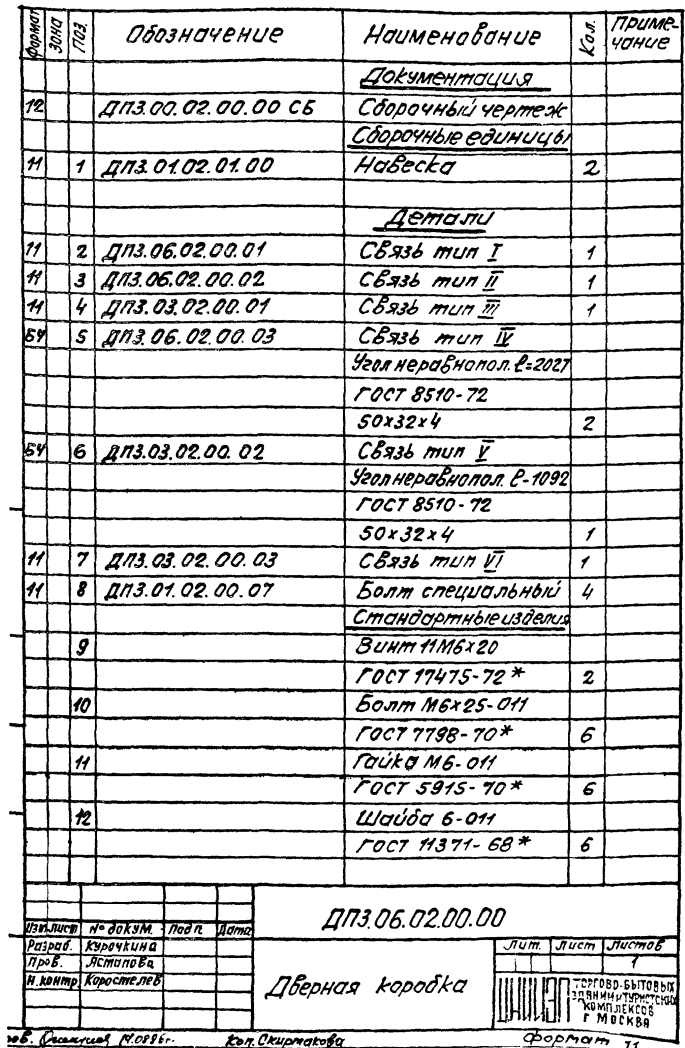 Формат Зона Поз. Обозначение Наименование Кол. Приме-
чание
Документация
12 ДПЗ.00.02.00.00 СБ Сборочный чертеж
Сборочные единицы
11 1 ДПЗ.01.02.01.00 Навеска 2
Детали
11 2 ДПЗ.06.02.00.01 Связь тип I 1
11 3 ДПЗ.06.02.00.02 Связь тип II 1
11 4 ДПЗ.03.02.00.01 Связь тип III 1
БЧ 5 ДПЗ.06.02.00.03 Связь тип IV
Угол неравнопол. ℓ=2027
ГОСТ 8510-72
50х32х4 2
БЧ 6 ДПЗ.03.02.00.02 Связь тип V
Угол неравнопол. ℓ-1092
ГОСТ 8510-72
50х32х4 1
11 7 ДПЗ.03.02.00.03 Связь тип VI 1
11 8 ДПЗ.01.02.00.07 Болт специальный 4
Стандартные изделия
9 Винт 11М6х20
ГОСТ 17475-72* 2
10 Болт М6х25-011
ГОСТ 7798-70* 6
11 Гайка М6-011
ГОСТ 5915-70* 6
12 Шайба 6-011
ГОСТ 11371-68* 6
ДПЗ.06.02.00.00
Изм. Лист № докум. Подп. Дата
Разраб. Курочкина
Пров. Астапова
Н.контр. Коростелев
Дверная коробка
Лит. Лист Листов
1
ЦНИИЭП
ТОРГОВО-БЫТОВЫХ
ЗДАНИЙ И ТУРИСТСКИХ
КОМПЛЕКСОВ
Г МОСКВА
Коп. Скирмакова Формат 11